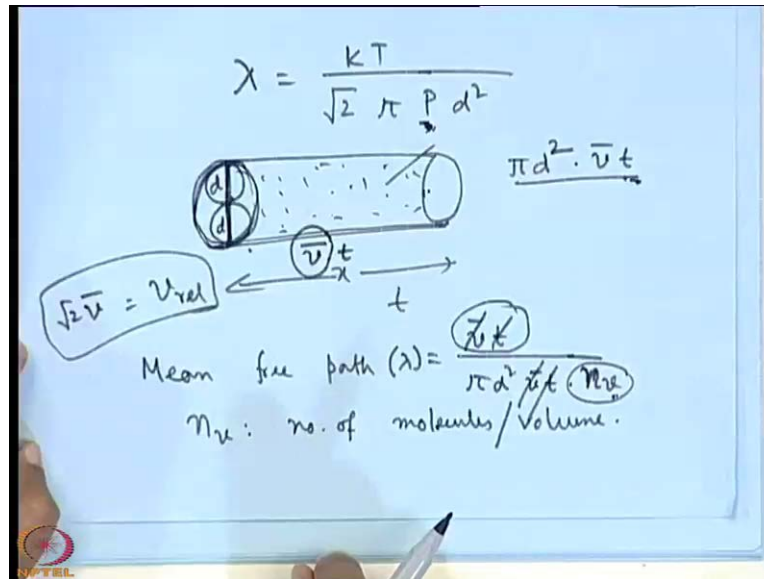 λ = KT / √2 π P d²
d
d
πd² · v̄ t
v̄ t
x
t
√2 v̄ = Vrel
Mean free path (λ) = v̄ t / πd² v̄ t · nv
nv : no. of molecules/Volume.
NPTEL